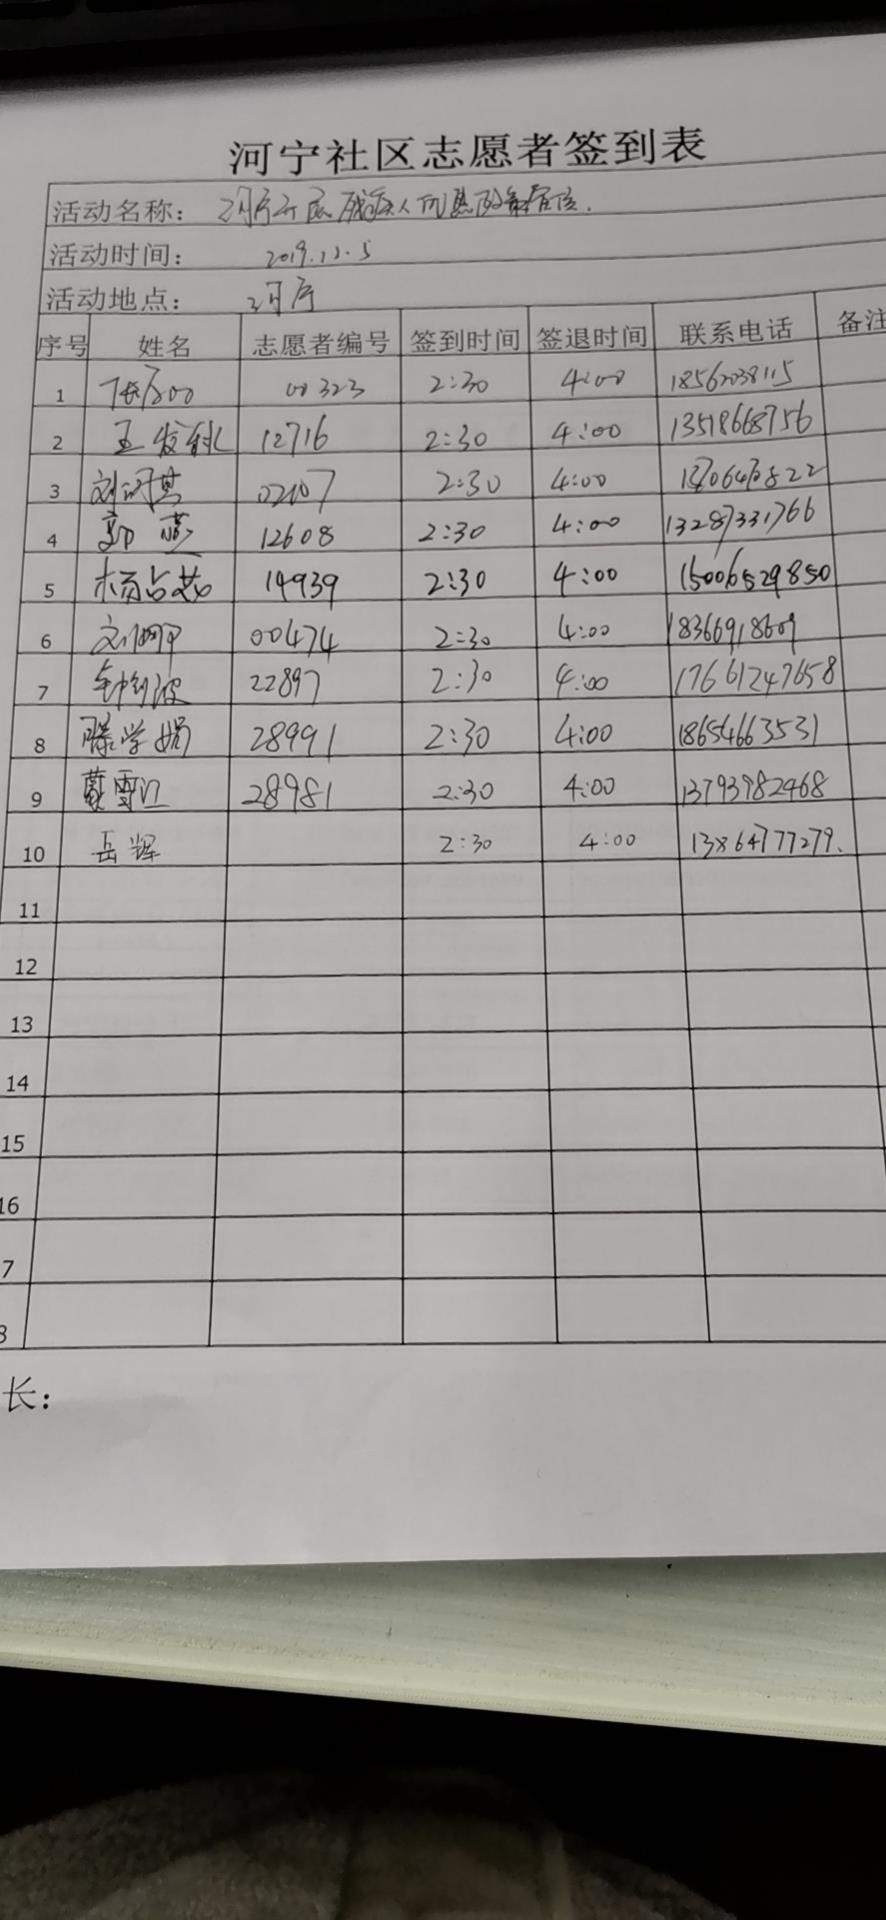 河宁社区志愿者签到表
活动名称： 河宁开展残疾人
活动时间： 2019.12.5
活动地点： 河宁
序号 姓名 志愿者编号 签到时间 签退时间 联系电话 备注
1 00323 2:30 4:00 18562038115
2 王发科 12716 2:30 4:00 13518668756
3 刘 02107 2:30 4:00
4 郭燕 12608 2:30 4:00 13287331766
5 杨占芬 14939 2:30 4:00 15006529850
6 刘 00474 2:30 4:00 18366918609
7 钟 波 22897 2:30 4:00 17661247658
8 滕学娟 28991 2:30 4:00 18654663531
9 28981 2:30 4:00 13793982468
10 岳辉 2:30 4:00 13864777279.
11
12
13
14
15
16
7
8
长：